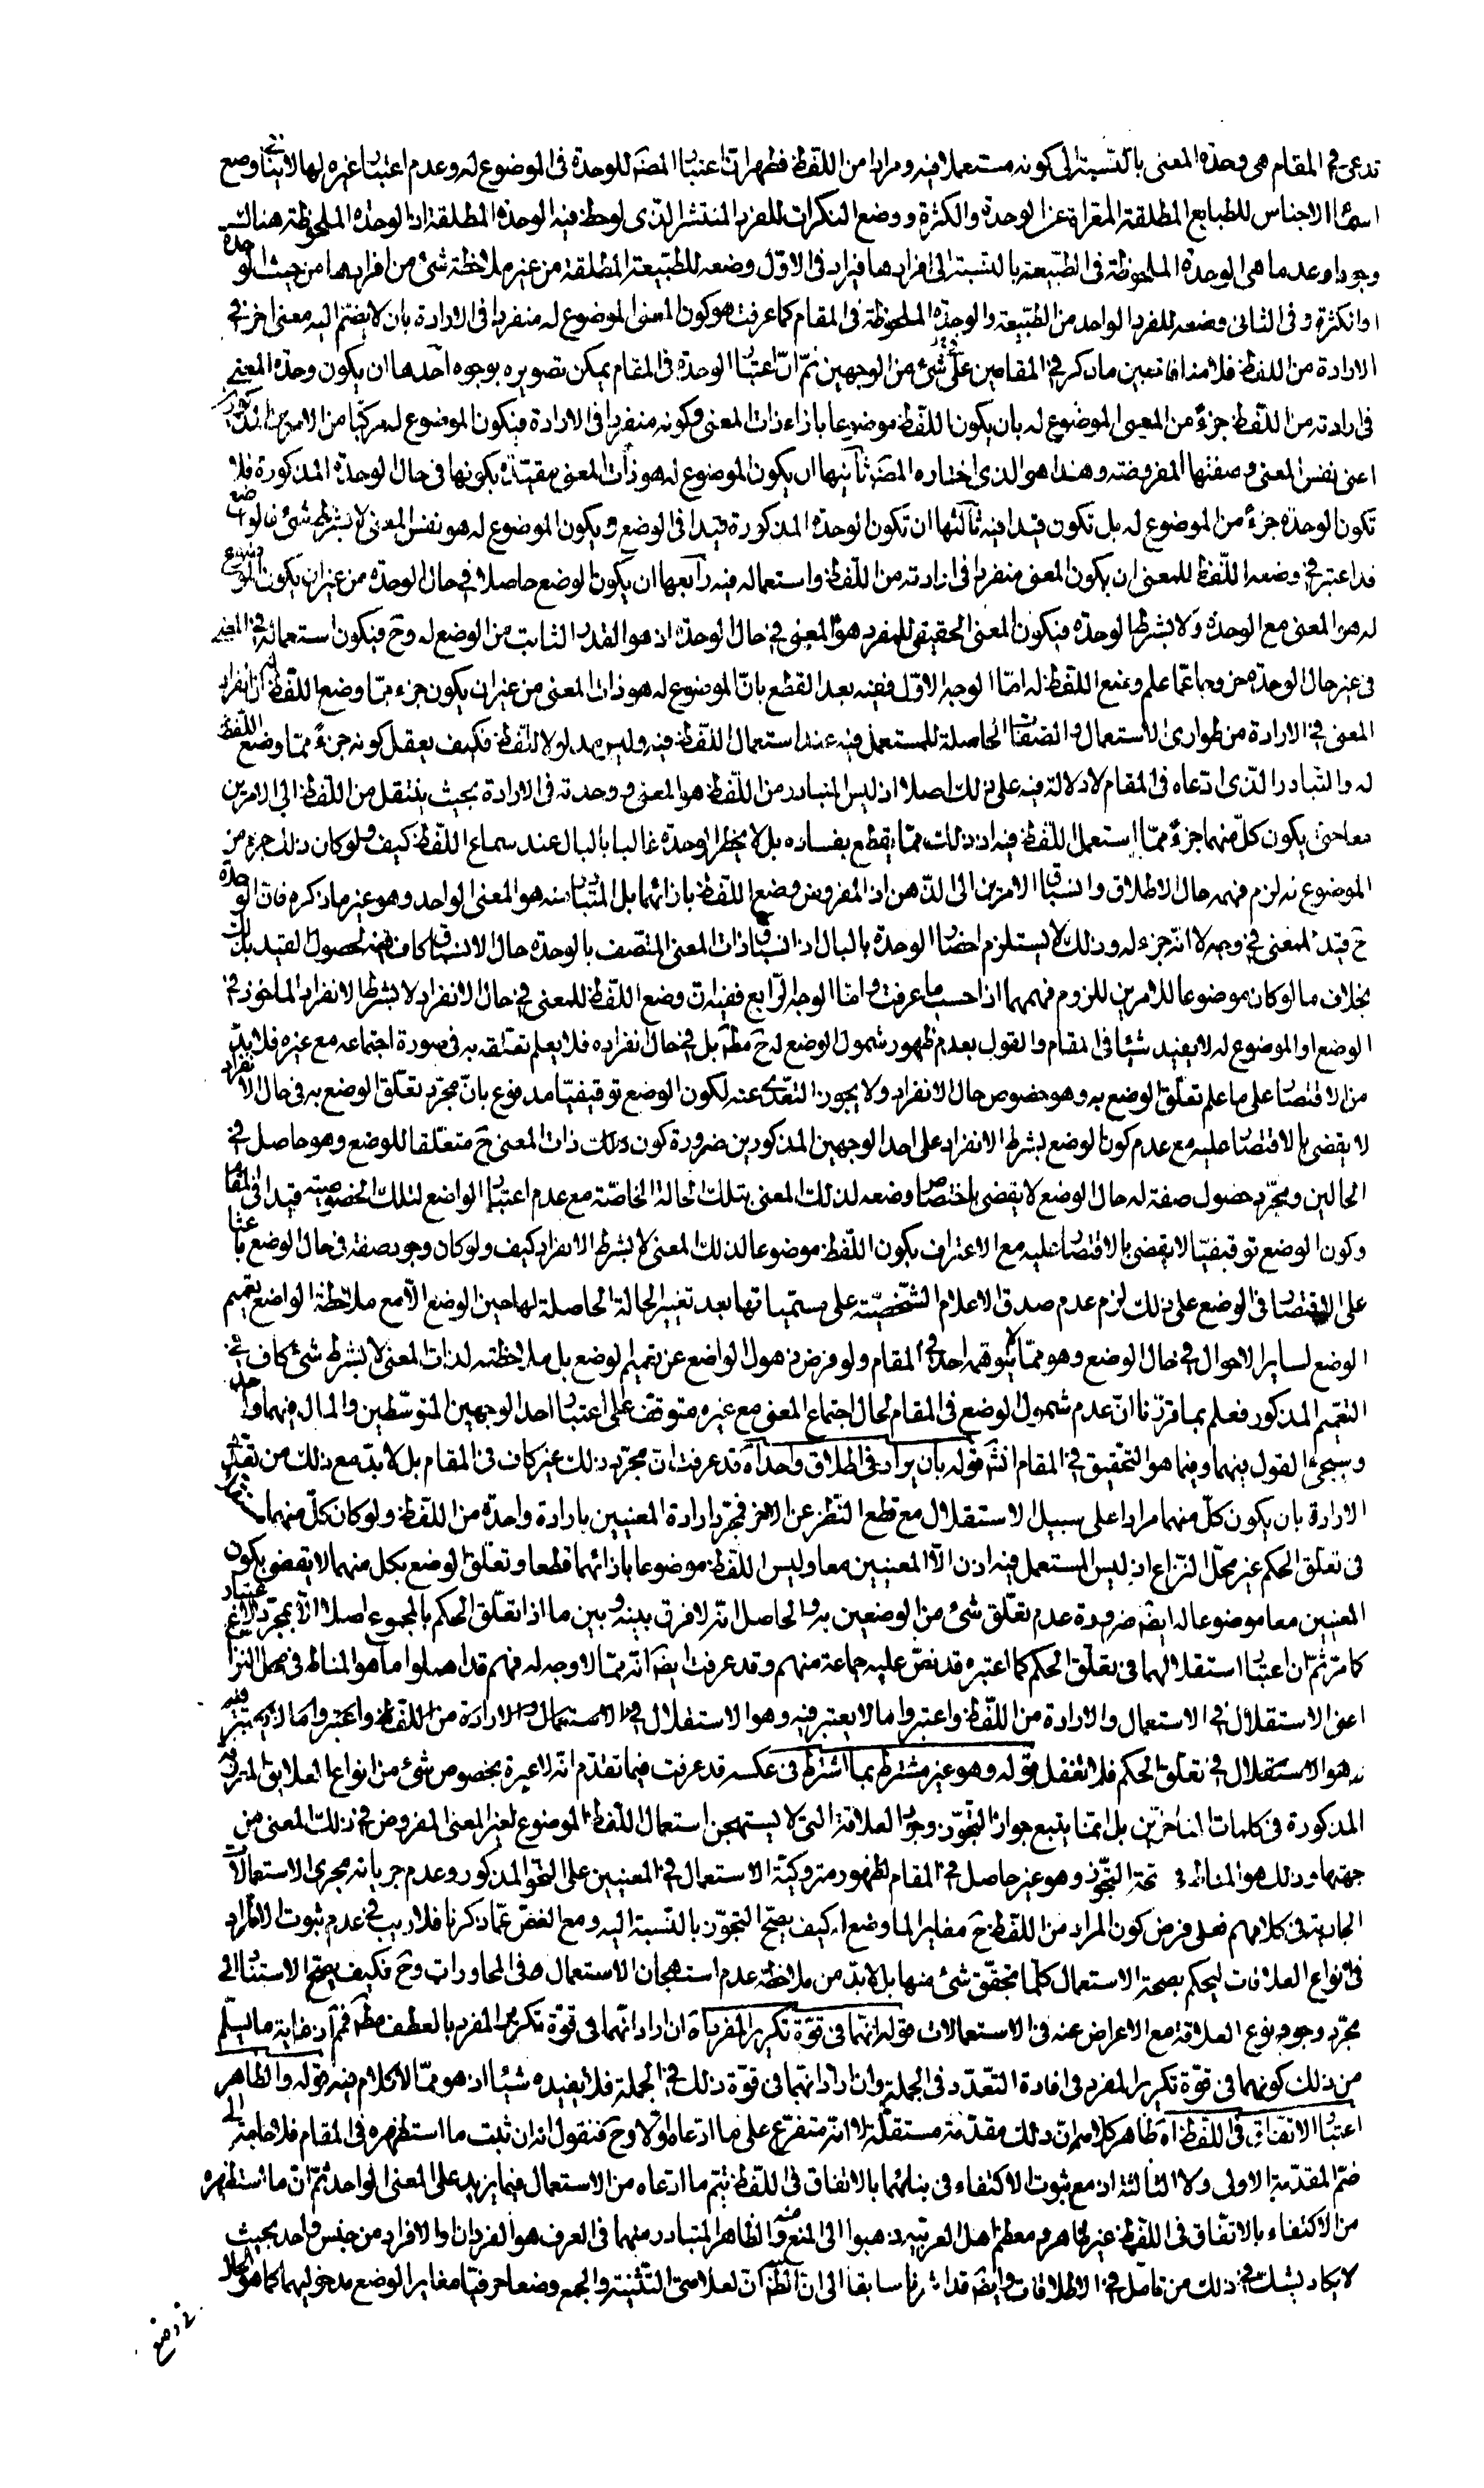 تدعى في المقام هي وحدة المعنى بالنسبة الى كونه مستعملا فيه ومرادا من اللفظ فظهر ان اعتبار المصّ للوحدة في الموضوع له وعدم اعتبار غيره لها لا ينافي وضع
اسماء الاجناس للطبايع المطلقة المعراة عن الوحدة والكثرة ووضع النكرات للفرد المنتشر الذى لوحظ فيه الوحدة المطلقة اذ الوحدة الملحوظة هناك
وجودا وعدما هى الوحدة الملحوظة فى الطبيعة بالنسبة الى افرادها فيراد فى الاول وضعه للطبيعة المطلقة من غير ملاحظة شئ من افرادها من حيث الوحدة
او الكثرة وفى الثانى وضعه للفرد الواحد من الطبيعة والوحدة الملحوظة فى المقام كما عرفت هو كون المعنى الموضوع له منفردا فى الارادة بان لا ينضم اليه معنى اخر في
الارادة من اللفظ فلا منافاة بين ما ذكر في المقامين على شئ من الوجهين ثم ان اعتبار الوحدة فى المقام يمكن تصويره بوجوه احدها ان يكون وحدة المعنى
فى ارادته من اللفظ جزءً من المعنى الموضوع له بان يكون اللفظ موضوعا بازاء ذات المعنى وكونه منفردا فى الارادة فيكون الموضوع له مركبا من الامرين المذكورين
اعنى نفس المعنى وصفتها المفروضة وهذا هو الذى اختاره المصّ ثانيها ان يكون الموضوع له هو ذات المعنى مقيدة بكونها في حال الوحدة المذكورة فلا
تكون الوحدة جزءً من الموضوع له بل تكون قيدا فيه ثالثها ان تكون الوحدة المذكورة قيدا فى الوضع ويكون الموضوع له هو نفس المعنى لا بشرط شئ فالواضع
قد اعتبر في وضعه اللفظ للمعنى ان يكون المعنى منفردا فى ارادته من اللفظ واستعماله فيه رابعها ان يكون الوضع حاصلا في حال الوحدة من غير ان يكون الموضوع
له هو المعنى مع الوحدة ولا بشرط الوحدة فيكون المعنى الحقيقى للمفرد هو المعنى في حال الوحدة اذ هو القدر الثابت من الوضع له وح فيكون استعماله في المعنى
فى غير حال الوحدة خروجا عما علم وضع اللفظ له امّا الوجه الاول ففيه بعد القطع بانّ الموضوع له هو ذات المعنى من غير ان يكون جزء مما وضع اللفظ له ان انفراد
المعنى في الارادة من طوارى الاستعمال والصفات الحاصلة للمستعمل فيه عند استعمال اللفظ فيه وليس مدلولا للفظ فكيف يعقل كونه جزءً مما وضع اللفظ
له والتبادر الذى ادعاه فى المقام لا دلالة فيه على ذلك اصلا اذ ليس المتبادر من اللفظ هو المعنى ووحدته فى الارادة بحيث ينتقل من اللفظ الى الامرين
معا حتى يكون كل منهما جزءً مما استعمل اللفظ فيه اذ ذلك مما يقطع بفساده بل لا يخطر الوحدة غالبا بالبال عند سماع اللفظ كيف ولو كان ذلك جزء من
الموضوع له لزم فهمه حال الاطلاق وانسباق الامرين الى الذهن اذ المفروض وضع اللفظ بازائهما بل المتبادر منه هو المعنى الواحد وهو غير ما ذكره فان الوحدة
ح قيد للمعنى في وجه لا انه جزء له وذلك لا يستلزم احضار الوحدة بالبال اذ انسباق ذات المعنى المتصف بالوحدة حال الانسباق كاف فيه لحصول القيد بذلك
بخلاف ما لو كان موضوعا للامرين للزوم فهمهما اذا حسب ما عرفت وامّا الوجه الرابع ففيه ان وضع اللفظ للمعنى في حال الانفراد لا بشرط الانفراد الماخوذ في
الوضع او الموضوع له لا يفيد شيئا فى المقام والقول بعدم ظهور شمول الوضع له ح مطلقا بل في حال انفراده فلا يعلم تعلقه به فى صورة اجتماعه مع غيره فلا بدّ
من الاقتصار على ما علم تعلق الوضع به وهو خصوص حال الانفراد ولا يجوز التعدى عنه لكون الوضع توقيفيّا مدفوع بانّ مجرد تعلق الوضع به فى حال الانفراد
لا يقضى بالاقتصار عليه مع عدم كون الوضع بشرط الانفراد على احد الوجهين المذكورين ضرورة كون ذلك ذات المعنى ح متعلقا للوضع وهو حاصل في
الحالين ومجرد حصول صفة له حال الوضع لا يقضى باختصاص وضعه لذلك المعنى بتلك الحالة الخاصة مع عدم اعتبار الواضع لتلك الخصوصية قيدا فى المقام
وكون الوضع توقيفيّا لا يقضى بالاقتصار عليه مع الاعتراف بكون اللفظ موضوعا لذلك المعنى لا بشرط الانفراد كيف ولو كان وجود صفة فى حال الوضع باعثا
على الاقتصار فى الوضع على ذلك لزم عدم صدق الاعلام الشخصيّة على مسمّياتها بعد تغيير الحالة الحاصلة لها حين الوضع الّا مع ملاحظة الواضع تعميم
الوضع لساير الاحوال في حال الوضع وهو مما لا يتوهمه احد في المقام ولو فرض ذهول الواضع عن تعميم الوضع بل ملاحظته لذات المعنى لا بشرط شئ كاف في
التعميم المذكور فعلم بما قررنا انّ عدم شمول الوضع فى المقام لحال اجتماع المعنى مع غيره متوقف على اعتبار احد الوجهين المتوسطين والمال فيهما واحد
وسيجئ القول فيهما وفيما هو التحقيق في المقام انشاء قوله بان يراد فى اطلاق واحد آه قد عرفت ان مجرد ذلك غير كاف فى المقام بل لا بدّ مع ذلك من تعدد
الارادة بان يكون كل منهما مرادا على سبيل الاستقلال مع قطع النظر عن الاخر فمجرد ارادة المعنيين بارادة واحدة من اللفظ ولو كان كل منهما مستقلا
فى تعلق الحكم غير محل النزاع اذ ليس المستعمل فيه اذن الّا المعنيين معا وليس اللفظ موضوعا بازائهما قطعا وتعلق الوضع بكل منهما لا يقضى بكون
المعنيين معا موضوعا له ايضا ضرورة عدم تعلق شئ من الوضعين به والحاصل انه لا فرق بينه وبين ما اذا تعلق الحكم بالمجموع اصلا الّا بمجرد الاعتبار
كما مرّ ثم ان اعتبار استقلالهما فى تعلق الحكم كما اعتبره قد نصّ عليه جماعة منهم وقد عرفت ايضا انه مما لا وجه له فهم قد اهملوا ما هو المناط فى محل النزاع
اعنى الاستقلال في الاستعمال والارادة من اللفظ واعتبروا ما لا يعتبر فيه وهو الاستقلال في الاستعمال والارادة من اللفظ واعتبروا ما لا يعتبر فيه
وهو الاستقلال في تعلق الحكم فلا تغفل قوله وهو غير مشترط بما اشترط فى عكسه قد عرفت فيما تقدم انه لا عبرة بخصوص شئ من انواع العلايق المعروفة
المذكورة فى كلمات المتاخرين بل انما يتبع جواز التجوّز وجود العلاقة التى لا يستهجن استعمال اللفظ الموضوع لغير المعنى المفروض في ذلك المعنى من
جهتها وذلك هو المناط فى صحة التجوز وهو غير حاصل في المقام لظهور متروكيّة الاستعمال في المعنيين على النحو المذكور وعدم جريانه مجرى الاستعمالات
الجارية فى كلامهم فعلى فرض كون المراد من اللفظ ح مغايرا لما وضع له كيف يصحّ التجوّز بالنسبة اليه ومع الغض عما ذكرنا فلا ريب في عدم ثبوت الاطّراد
فى انواع العلاقات ليحكم بصحة الاستعمال كلما تحقق شئ منها بل لا بدّ من ملاحظة عدم استهجان الاستعمال فى المحاورات وح فكيف يصح الاستناد الى
مجرد وجود نوع العلاقة مع الاعراض عنه فى الاستعمالات قوله انهما فى قوة تكرير المفرد آه ان اراد انهما فى قوة تكرير المفرد بالعطف مطلقا فمم اذ غاية ما يسلم
من ذلك كونهما فى قوة تكرير المفرد فى افادة التعدد فى الجملة وان اراد انهما فى قوة ذلك في الجملة فلا يفيده شيئا اذ هو مما لا كلام فيه قوله والظاهر
اعتبار الاتفاق فى اللفظ آه ظاهر كلامه ان ذلك مقدمة مستقلة لا انه متفرع على ما ادعاه اولا وح فنقول انه ان ثبت ما استظهره فى المقام فلا حاجة الى
ضمّ المقدمة الاولى ولا الثالثة اذ مع ثبوت الاكتفاء فى بنائهما بالاتفاق فى اللفظ يتم ما ادعاه من الاستعمال فيما يزيد على المعنى الواحد ثمّ انّ ما استظهره
من الاكتفاء بالاتفاق فى اللفظ غير ظاهر ومعظم اهل العربيّة ذهبوا الى المنع منه والظاهر المتبادر منهما فى العرف هو الفردان او الافراد من جنس واحد بحيث
لا يكاد يشك في ذلك من تامّل في الاطلاقات وايضا قد اشرنا سابقا الى ان الظّ ان لعلامتى التثنية والجمع وضعا حرفيّا مغايرا لوضع مدخوليهما كما هو الحال
في وضع